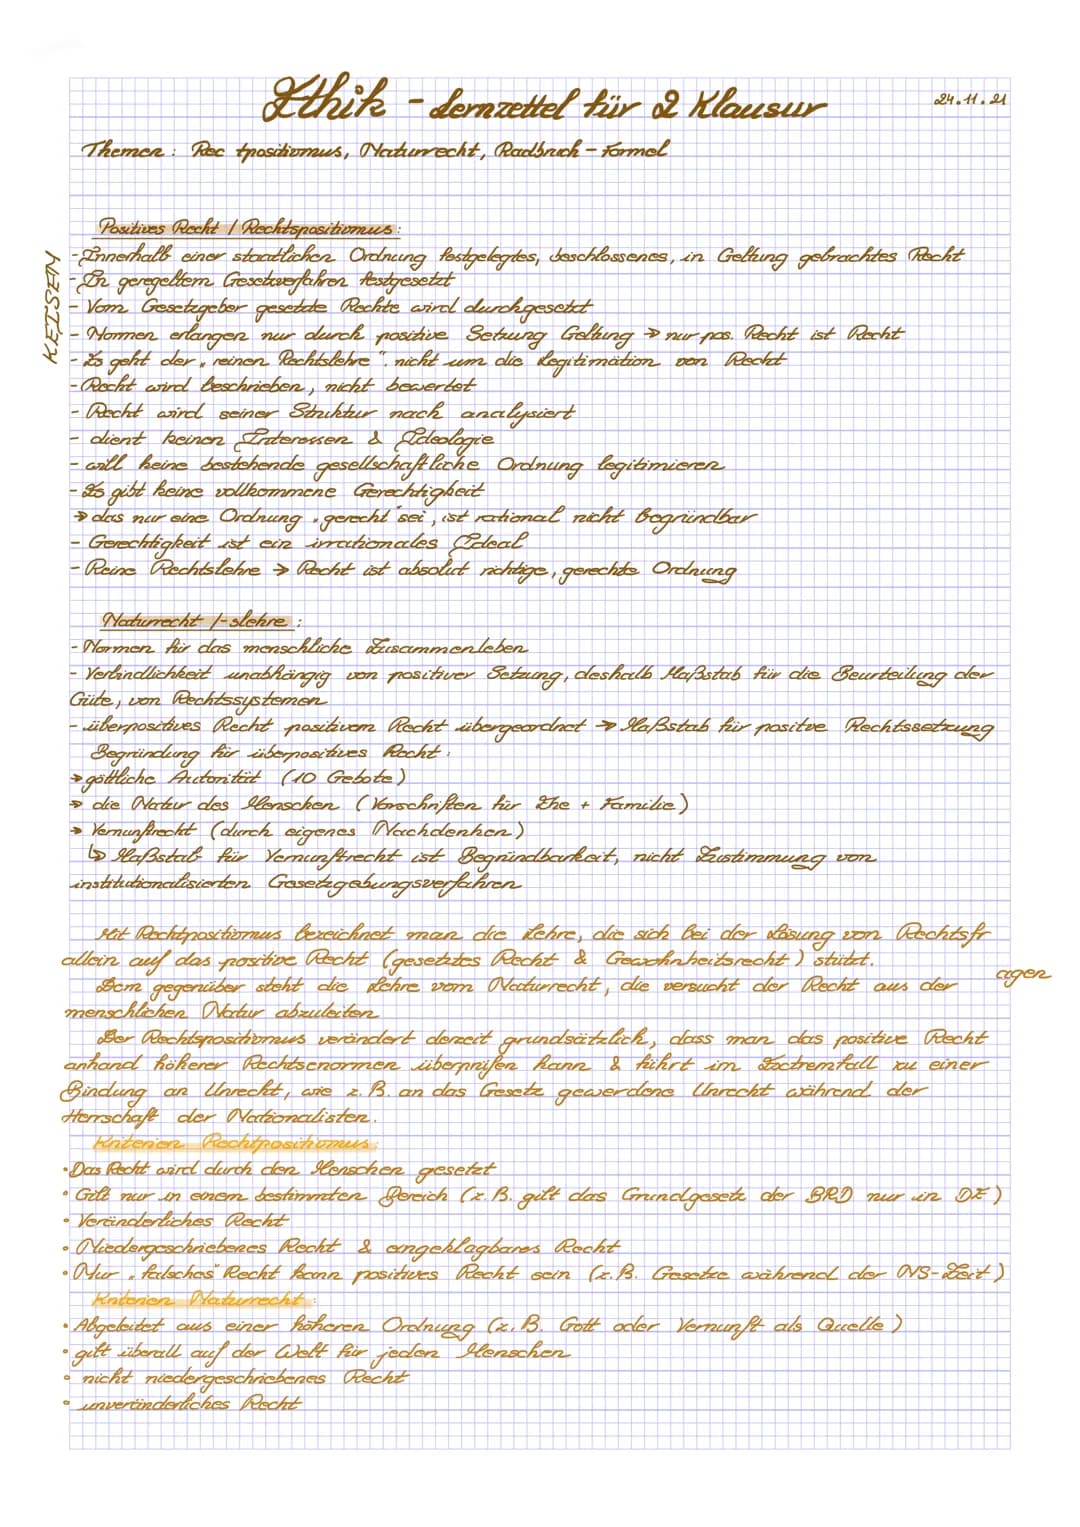 Ethik - Lernzettel für 2 Klausur
24.11.21
Themen: Rec tpositivmus, Naturrecht, Radbruch - Formel
Positives Recht / Rechtspositivmus:
KELSEN
- Innerhalb einer staatlichen Ordnung festgelegtes, beschlossenes, in Geltung gebrachtes Recht
- In geregeltem Gesetzverfahren festgesetzt
- Vom Gesetzgeber gesetzte Rechte wird durchgesetzt
- Normen erlangen nur durch positive Setzung Geltung → nur pos. Recht ist Recht
- Es geht der „reinen Rechtslehre" nicht um die Legitimation von Recht
- Recht wird beschrieben, nicht bewertet
- Recht wird seiner Struktur nach analysiert
- dient keinen Interessen & Ideologie
- will keine bestehende gesellschaftliche Ordnung legitimieren
- Es gibt keine vollkommene Gerechtigkeit
→ das nur eine Ordnung „gerecht" sei, ist rational nicht begründbar
- Gerechtigkeit ist ein irrationales Ideal
- Reine Rechtslehre → Recht ist absolut richtige, gerechte Ordnung
Naturrecht /-slehre:
- Normen für das menschliche Zusammenleben
- Verbindlichkeit unabhängig von positiver Setzung, deshalb Maßstab für die Beurteilung der
Güte, von Rechtssystemen
- überpositives Recht positivem Recht übergeordnet → Maßstab für positve Rechtssetzung
Begründung für überpositives Recht:
→ göttliche Autorität (10 Gebote)
→ die Natur des Menschen (Vorschriften für Ehe + Familie)
→ Vernunftrecht (durch eigenes Nachdenken)
↳ Maßstab für Vernunftrecht ist Begründbarkeit, nicht Zustimmung von
institutionalisierten Gesetzgebungsverfahren
Mit Rechtpositivmus bezeichnet man die Lehre, die sich bei der Lösung von Rechtsfr
agen
allein auf das positive Recht (gesetztes Recht & Gewohnheitsrecht) stützt.
Dem gegenüber steht die Lehre vom Naturrecht, die versucht der Recht aus der
menschlichen Natur abzuleiten
Der Rechtspositivmus verändert derzeit grundsätzlich, dass man das positive Recht
anhand höherer Rechtsenormen überprüfen kann & führt im Extremfall zu einer
Bindung an Unrecht, wie z.B. an das Gesetz gewordene Unrecht während der
Herrschaft der Nationalisten.
Kriterien Rechtpositivmus:
• Das Recht wird durch den Menschen gesetzt
• Gilt nur in einem bestimmten Bereich (z.B. gilt das Grundgesetz der BRD nur in DE)
• Veränderliches Recht
• Niedergeschriebenes Recht & eingeklagbares Recht
• Nur „falsches" Recht kann positives Recht sein (z.B. Gesetze während der NS-Zeit)
Kriterien Naturrecht:
• Abgeleitet aus einer höheren Ordnung (z.B. Gott oder Vernunft als Quelle)
• gilt überall auf der Welt für jeden Menschen
• nicht niedergeschriebenes Recht
• unveränderliches Recht